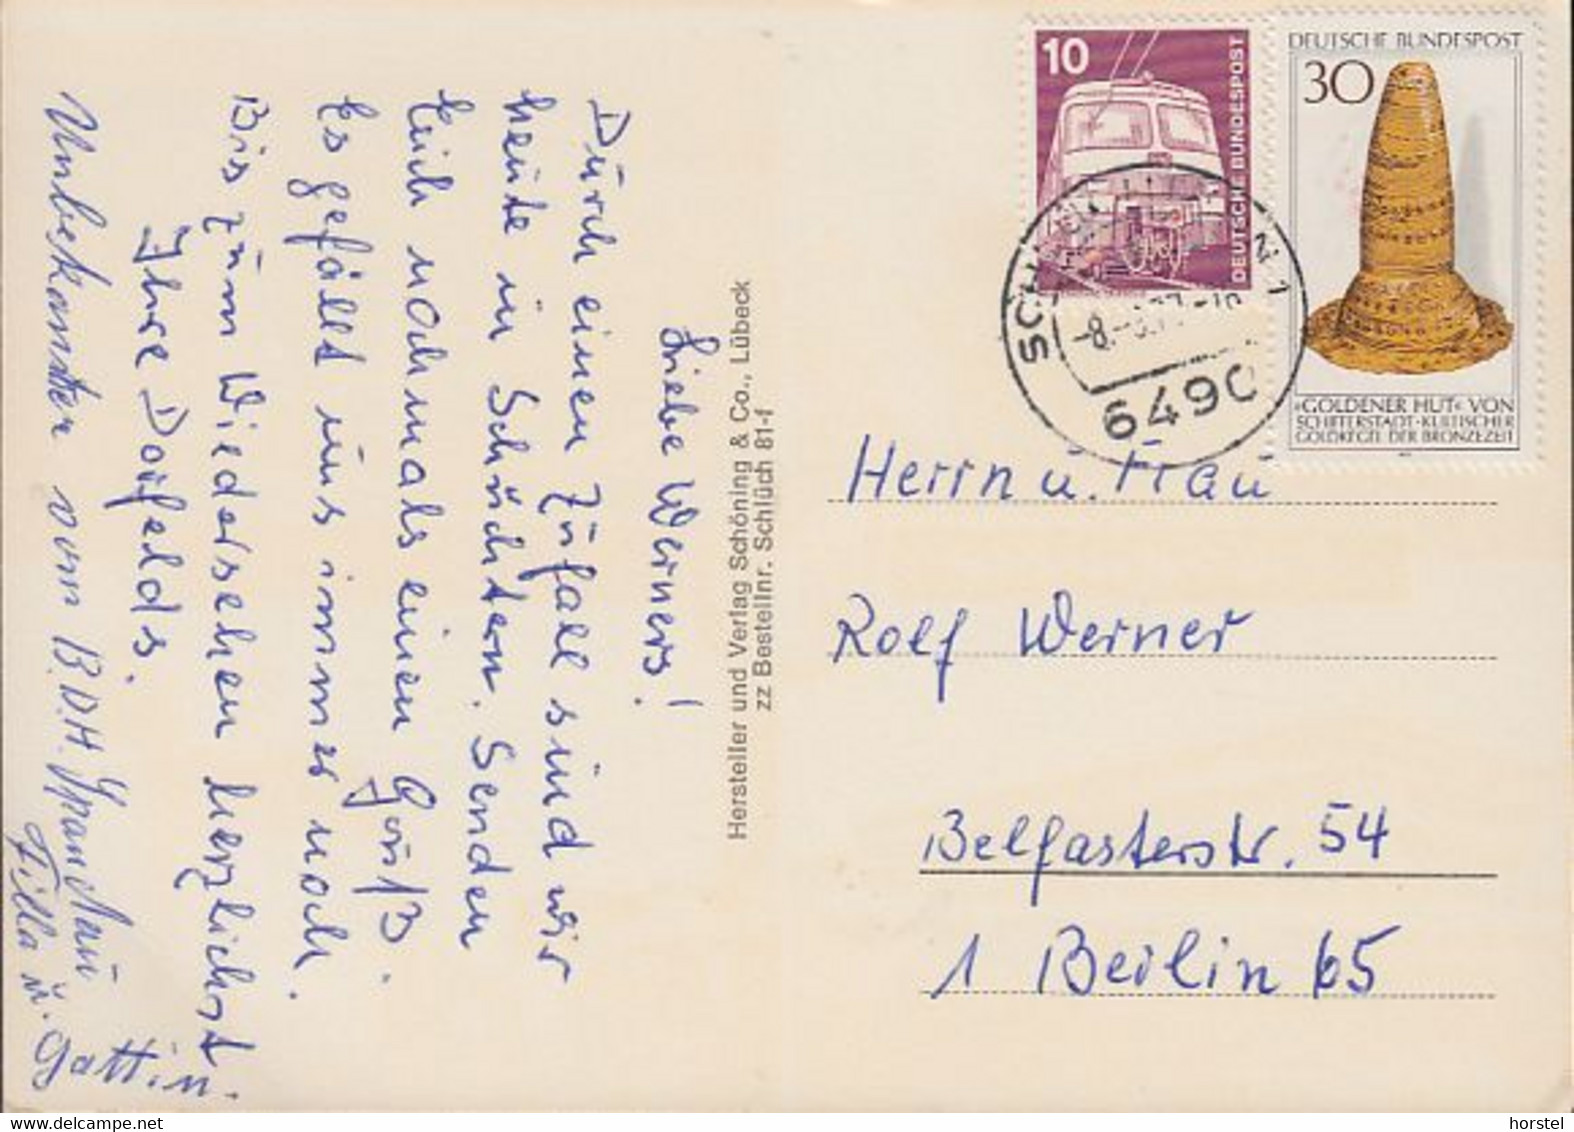 Liebe Werners!
Durch einen Zufall sind wir
heute in Schlüchtern. Senden
Euch nochmals einen Gruß.
Es gefällt uns immer noch.
Bis zum Wiedersehen herzlichst
Ihre Dorfelds.
Unbekannter vom B.D.H. Spandau
u. Gattin.
Hersteller und Verlag Schöning & Co., Lübeck
zz Bestellnr. Schlüch 81-f
10
DEUTSCHE BUNDESPOST
DEUTSCHE BUNDESPOST
30
»GOLDENER HUT« VON
SCHIFFERSTADT · KULTISCHER
GOLDKEGEL DER BRONZEZEIT
6490
Herrn u. Frau
Rolf Werner
Belfasterstr. 54
1 Berlin 65
horstel